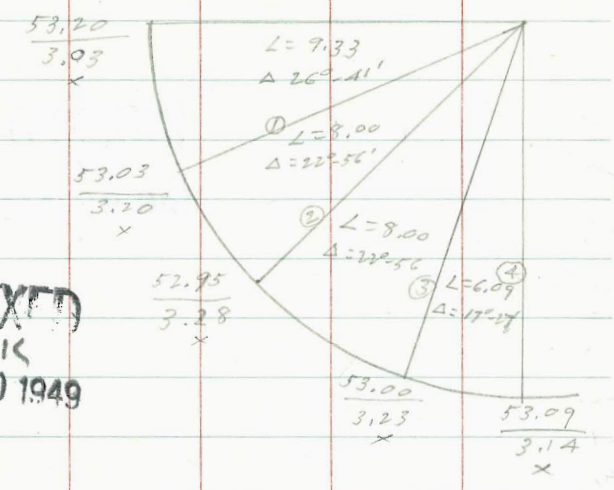 53.20
3.03
x
L = 9.33
Δ 26°-41'
①
L = 8.00
Δ = 22°-56'
53.03
3.20
x
②
L = 8.00
Δ = 22°-56
52.95
3.28
x
③
L = 6.09
④
Δ = 17°-27'
XED
1949
53.00
3.23
x
53.09
3.14
x